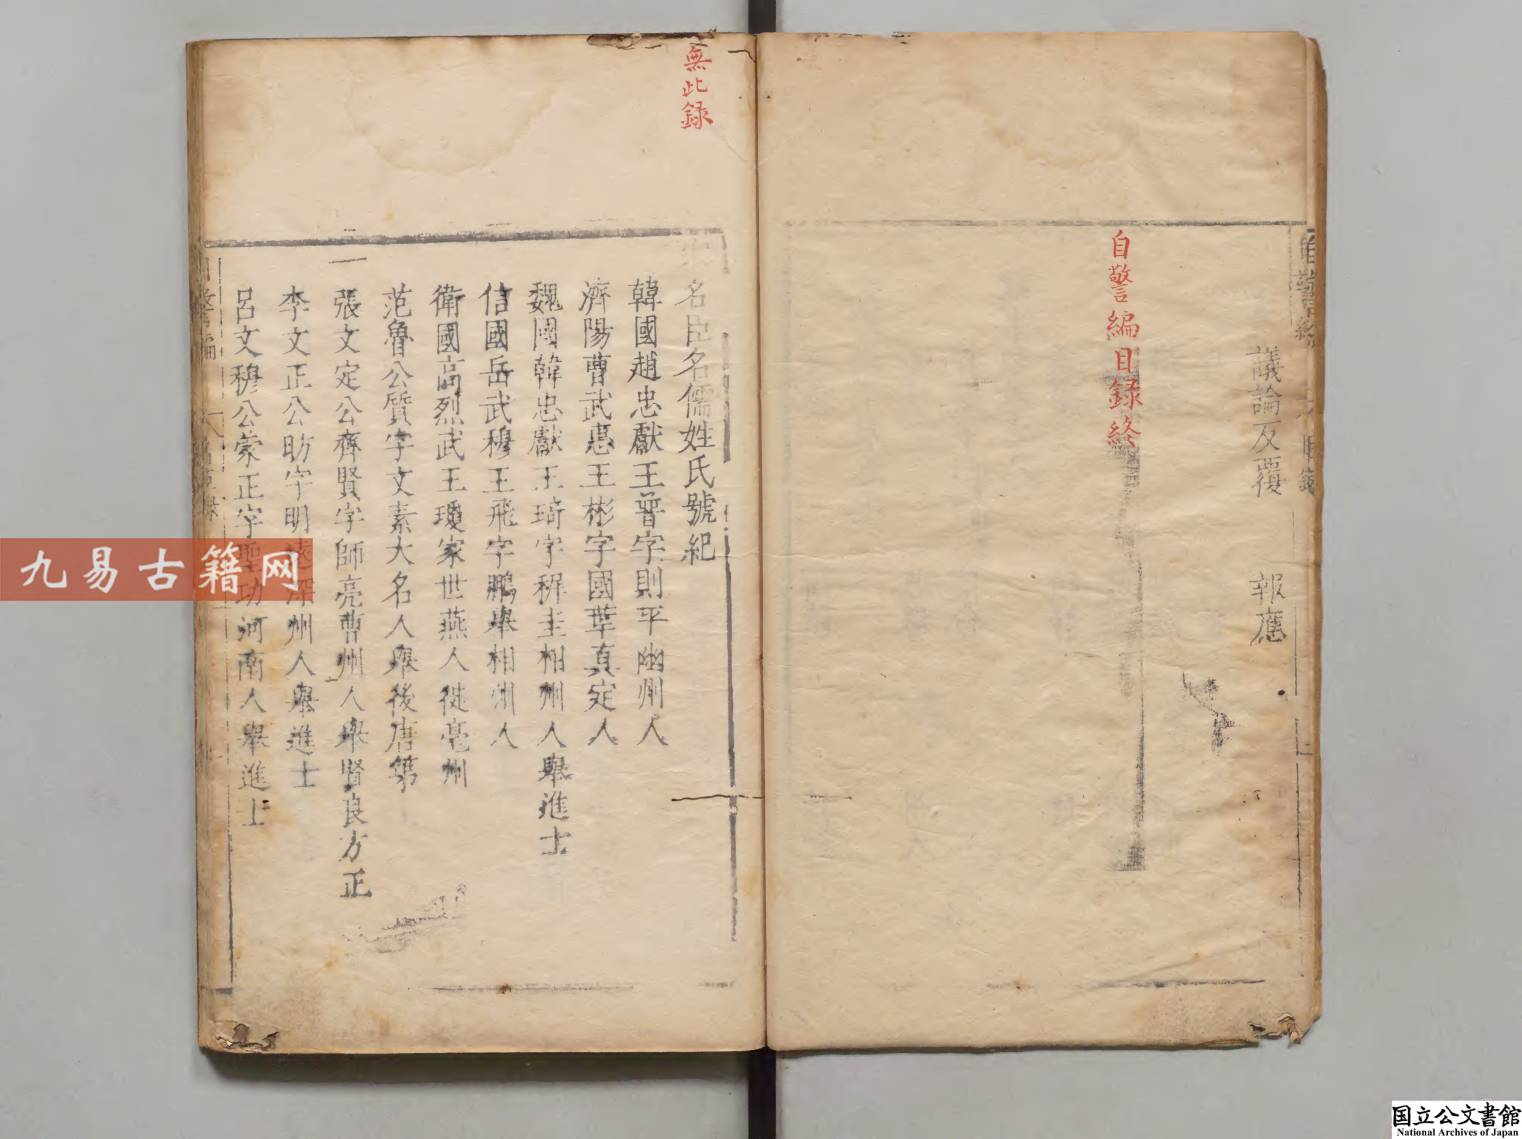 議論反覆　報應
自警編目録終
無此録
名臣名儒姓氏號紀
韓國趙忠獻王普字則平幽州人
濟陽曹武惠王彬字國華真定人
魏國韓忠獻王琦字稚圭相州人舉進士
信國岳武穆王飛字鵬舉相州人
衛國高烈武王瓊家世燕人徙亳州
范魯公質字文素大名人舉後唐第
張文定公齊賢字師亮曹州人舉賢良方正
李文正公昉字明遠深州人舉進士
呂文穆公蒙正字聖功河南人舉進士
九易古籍网
国立公文書館
National Archives of Japan